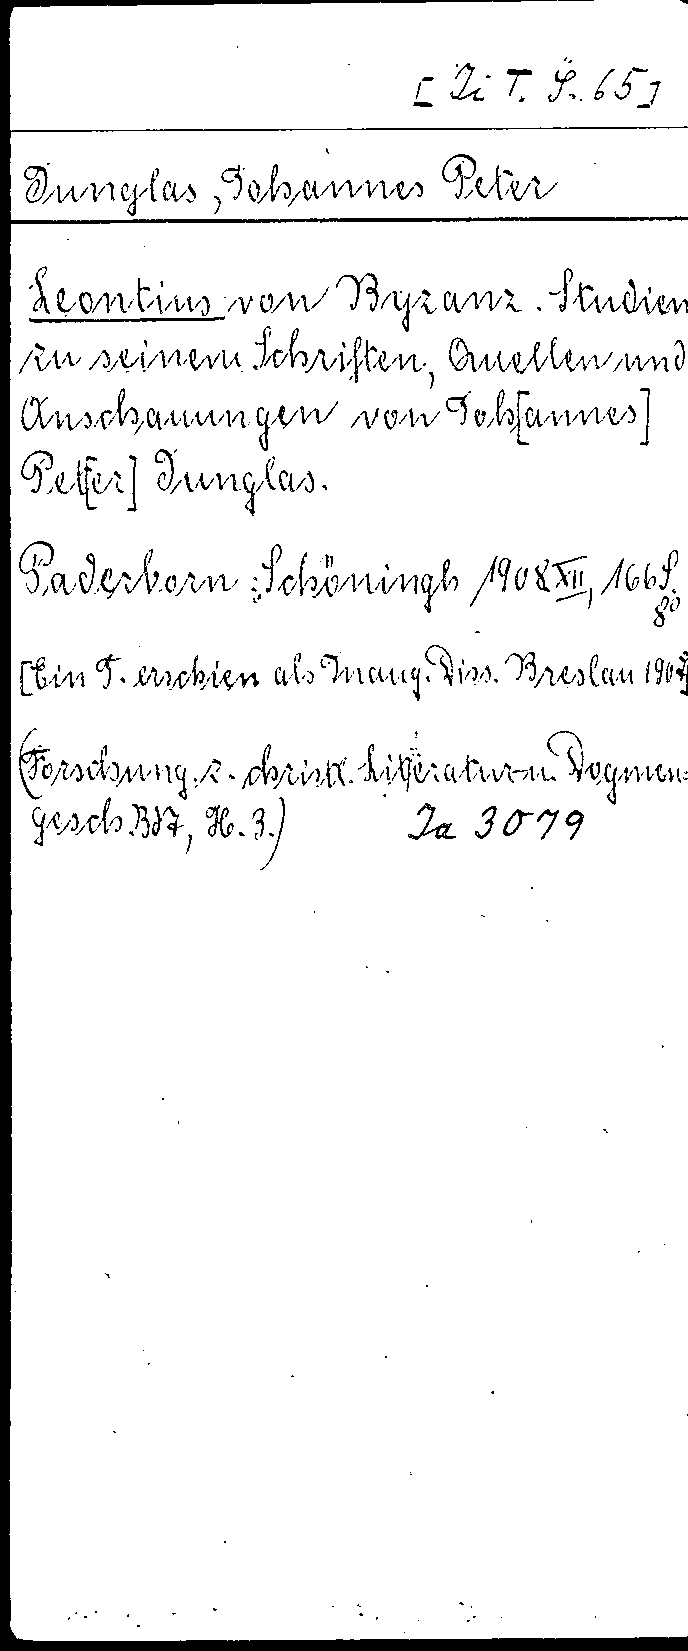 [Zi T. S. 65]
Junglas, Johannes Peter
Leontius von Byzanz. Studien
zu seinem Schriften, Quellen und
Anschauungen von Joh[annes]
Pet[er] Junglas.
Paderborn: Schöningh 1908 XII, 166 S.
8°
[Ein T. erschien als Inaug. Diss. Breslau 1907]
(Forschung. z. christl. Literatur u. Dogmen-
gesch. Bd 7, H. 3.) Ja 3079